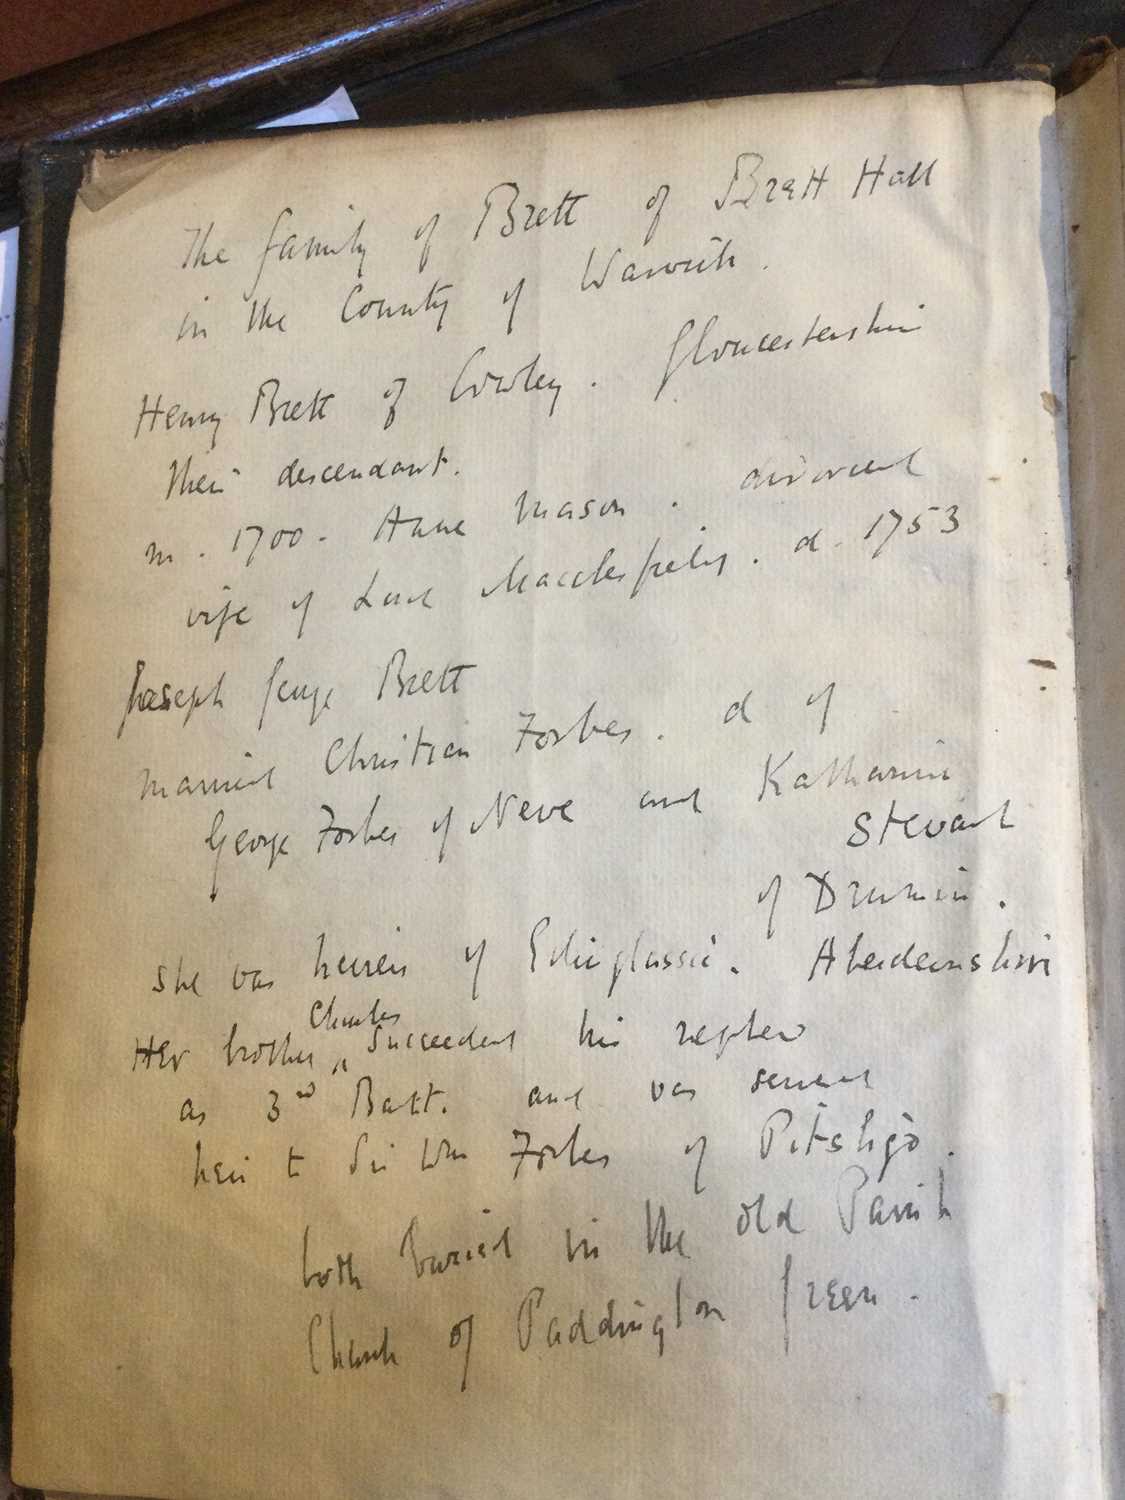 The family of Brett of Brett Hall
in the County of Warwick.
Henry Brett of Cowley. Gloucestershire
their descendant.
m. 1700. Anne Mason. divorced
wife of Lord Macclesfield. d. 1753
Joseph George Brett
married Christian Forbes. d of
George Forbes of Newe and Katharine
Stewart
of Drumin.
she was heiress of Edinglassie. Aberdeenshire
Her brother Charles succeeded his nephew
as 3rd Bart. and was served
heir to Sir Wm Forbes of Pitsligo.
both buried in the old Parish
Church of Paddington Green.